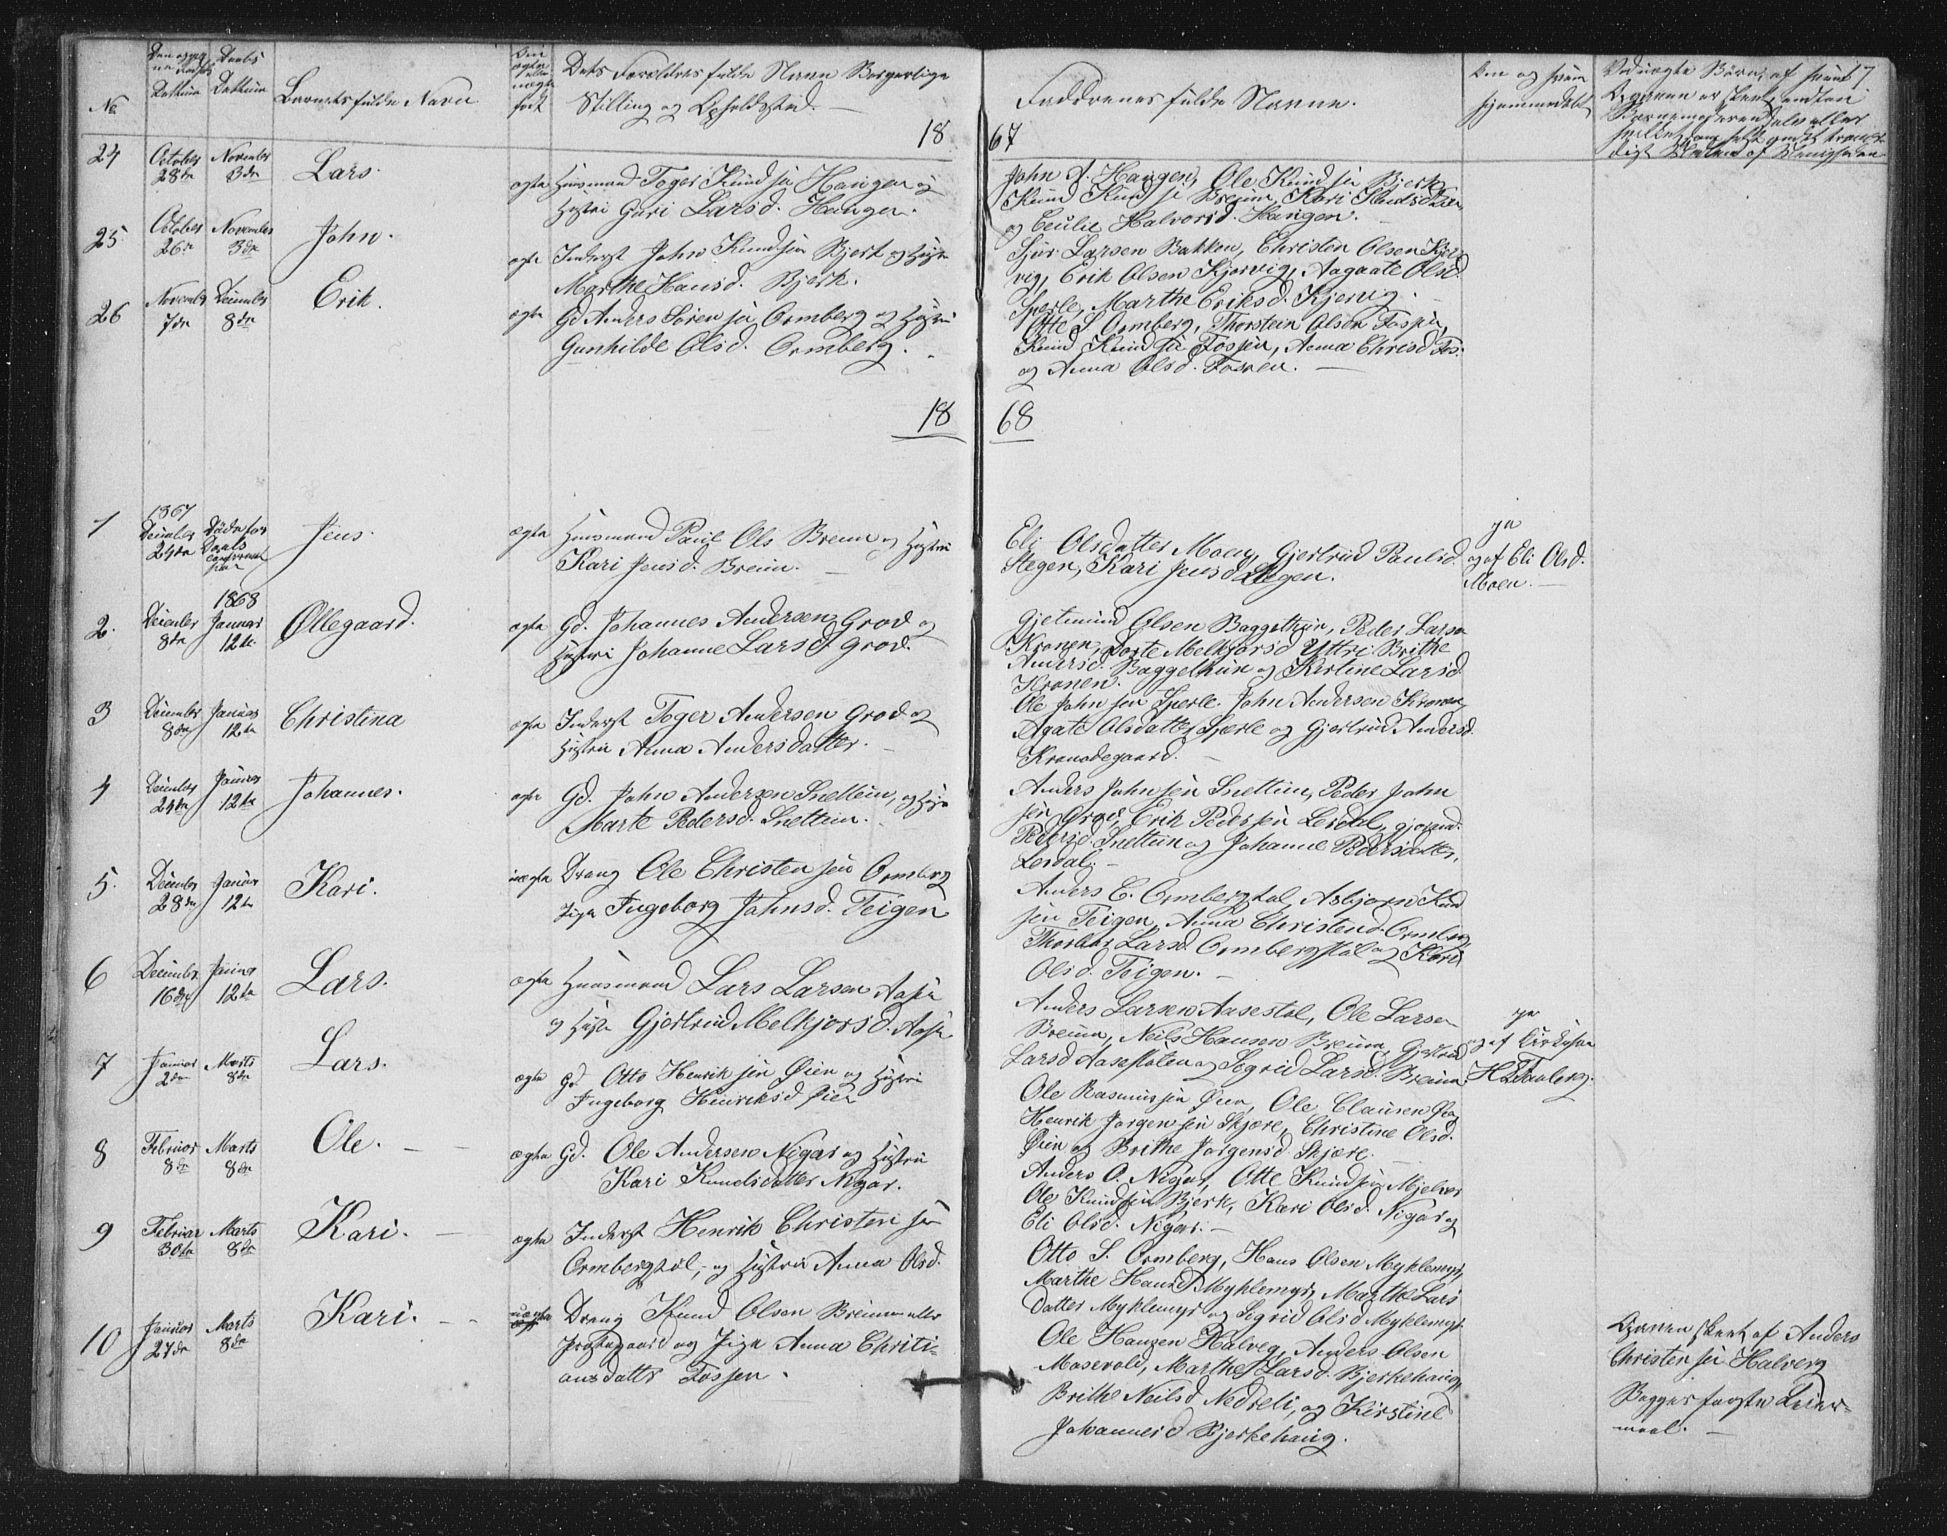 No
Dattum
Daabs
Dattum
Barnets fulde Navn
Dets Forældres fulde Navn Borgerlige
Stilling og Opholdssted.
Faddrenes fulde Navne.
Om og
hjemmedøbt
Ved uægte Børn, af
17
18
67
24
October
28de
November
3die
Lars.
ægte
Huusmand Toger Knudsen Haugen og
Hustru Guri Larsd. Haugen.
John A. Haugen, Ole Knudsen Bjerk
Knud Knudsen Breum, Kari
og Ceulie Halvorsd. Haugen.
25
October
26de
November
3die
John.
ægte
Inderst John Knudsen Bjerk og Hustru
Marthe Hansd. Bjerk.
Sjur Larsen Bakken, Christen Olsen Kjer-
vig, Erik Olsen Kjervig, Aagaate Olsd.
Sperle, Marthe Eriksd. Kjervig.
26
November
7de
December
8de
Erik.
ægte
Gd Anders Sørensen Ormberg og Hustru
Gunhilde Olsd. Ormberg.
Otte S. Ormberg, Thorstein Olsen Fossen,
Knud Knudsen Fossen, Anna Chrisd Fos:
og Anna Olsd. Fossen.
18
68
1
1867
December
24de
Jens.
ægte
Huusmand Paul Ols Breum og Hustru
Kari Jensd. Breum.
Eli Olsdatter Moen, Gjertrud Paulsd.
Hegen, Kari Jensd Hegen.
ja
og af Eli Olsd.
Moen.
2.
December
8de
1868
Januar
12te
Øllegaard.
ægte
Gd. Johannes Andersen Grod og
Hustru Johanne Larsd Grod.
Gjetmund Olsen Baggethun, Peder Larsen
Kronen, Dorte Melkjorsd Yttri Brithe
Andersd. Baggethun og Kirstine Larsd
Kronen.
3
December
8de
Januar
12te
Christina
ægte
Inderst Toger Andersen Grod og
Hustru Anna Andersdatter.
Ole Johnsen Sperle. John Andersen Kronen,
Agate Olsdatter Sperle og Gjertrud Andersd.
Kronodegaard.
4
December
24de
Januar
12te
Johannes.
ægte
Gd. John Andersen Snettun, og Hustru
Marte Pedersd. Snettun.
Anders Johnsen Snettun, Peder John
sen Grod, Erik Pedersen Lerdal,
Pedersd Snettun og Johanne Pedersdatter,
Lerdal.
5.
December
28de
Januar
12te
Kari.
uægte
Dreng Ole Christensen Ormberg
Pige Ingeborg Johnsd. Teigen
Anders E. Ormbergstøl, Asbjorn Knud
sen Teigen, Anna Christend. Ormberg
Larsd. Ormbergstøl og Kari
Olsd. Teigen.
6
December
16de
Januar
12te
Lars.
ægte
Huusmand Lars Larsen Aasen
og Hustru Gjertrud Melkjorsd. Aasen
Anders Larsen Aasestøl, Ole Larsen
Breum, Neils Hansen Breum, Gjertrud
Larsd Aasestølen og Segrid Larsd. Breum.
ja
og af Kirkesan
7
Januar
2den
Marts
8de
Lars.
ægte
Gd. Otto Henriksen Øien og Hustru
Ingeborg Henriksd Øien
Ole Rasmussen Øien, Ole Clausen
Henrik Jørgensen Skjære, Christine Olsd.
Øien og Brithe Jørgensd. Skjære.
8
Februar
8de
Marts
8de
Ole.
ægte
Gd. Ole Andersen Nigar og Hustru
Kari Knudsdatter Nigar.
Anders O. Nigar, Otte Knudsen Mjelver
Ole Knudsen Bjerk, Kari Olsd. Nigar og
Eli Olsd. Nigar.
9
Februar
30te
Marts
8de
Kari.
ægte
Inderst Henrik Christensen
Ormbergstøl, og Hustru Anna Olsd.
Otto S. Ormberg, Hans Olsen Myklemyr,
Marthe Hansd Myklemyr, Marthe Lars
datter Myklemyr og Segrid Olsd Myklemyr
10
Januar
27de
Marts
8de
Kari.
uægte
Dreng Knud Olsen Breum eller
Prestegaard og Pige Anna Christi-
ansdatter Fossen.
Ole Hanzen Halveg, Anders Olsen
Mosevold, Marthe Larsd. Bjerkehaug,
Brithe Neilsd Nedreli, og Kirstine
Johannesd Bjerkehaug.
skeet af Anders
Christensen Halverg
Begges første Leier-
maal.